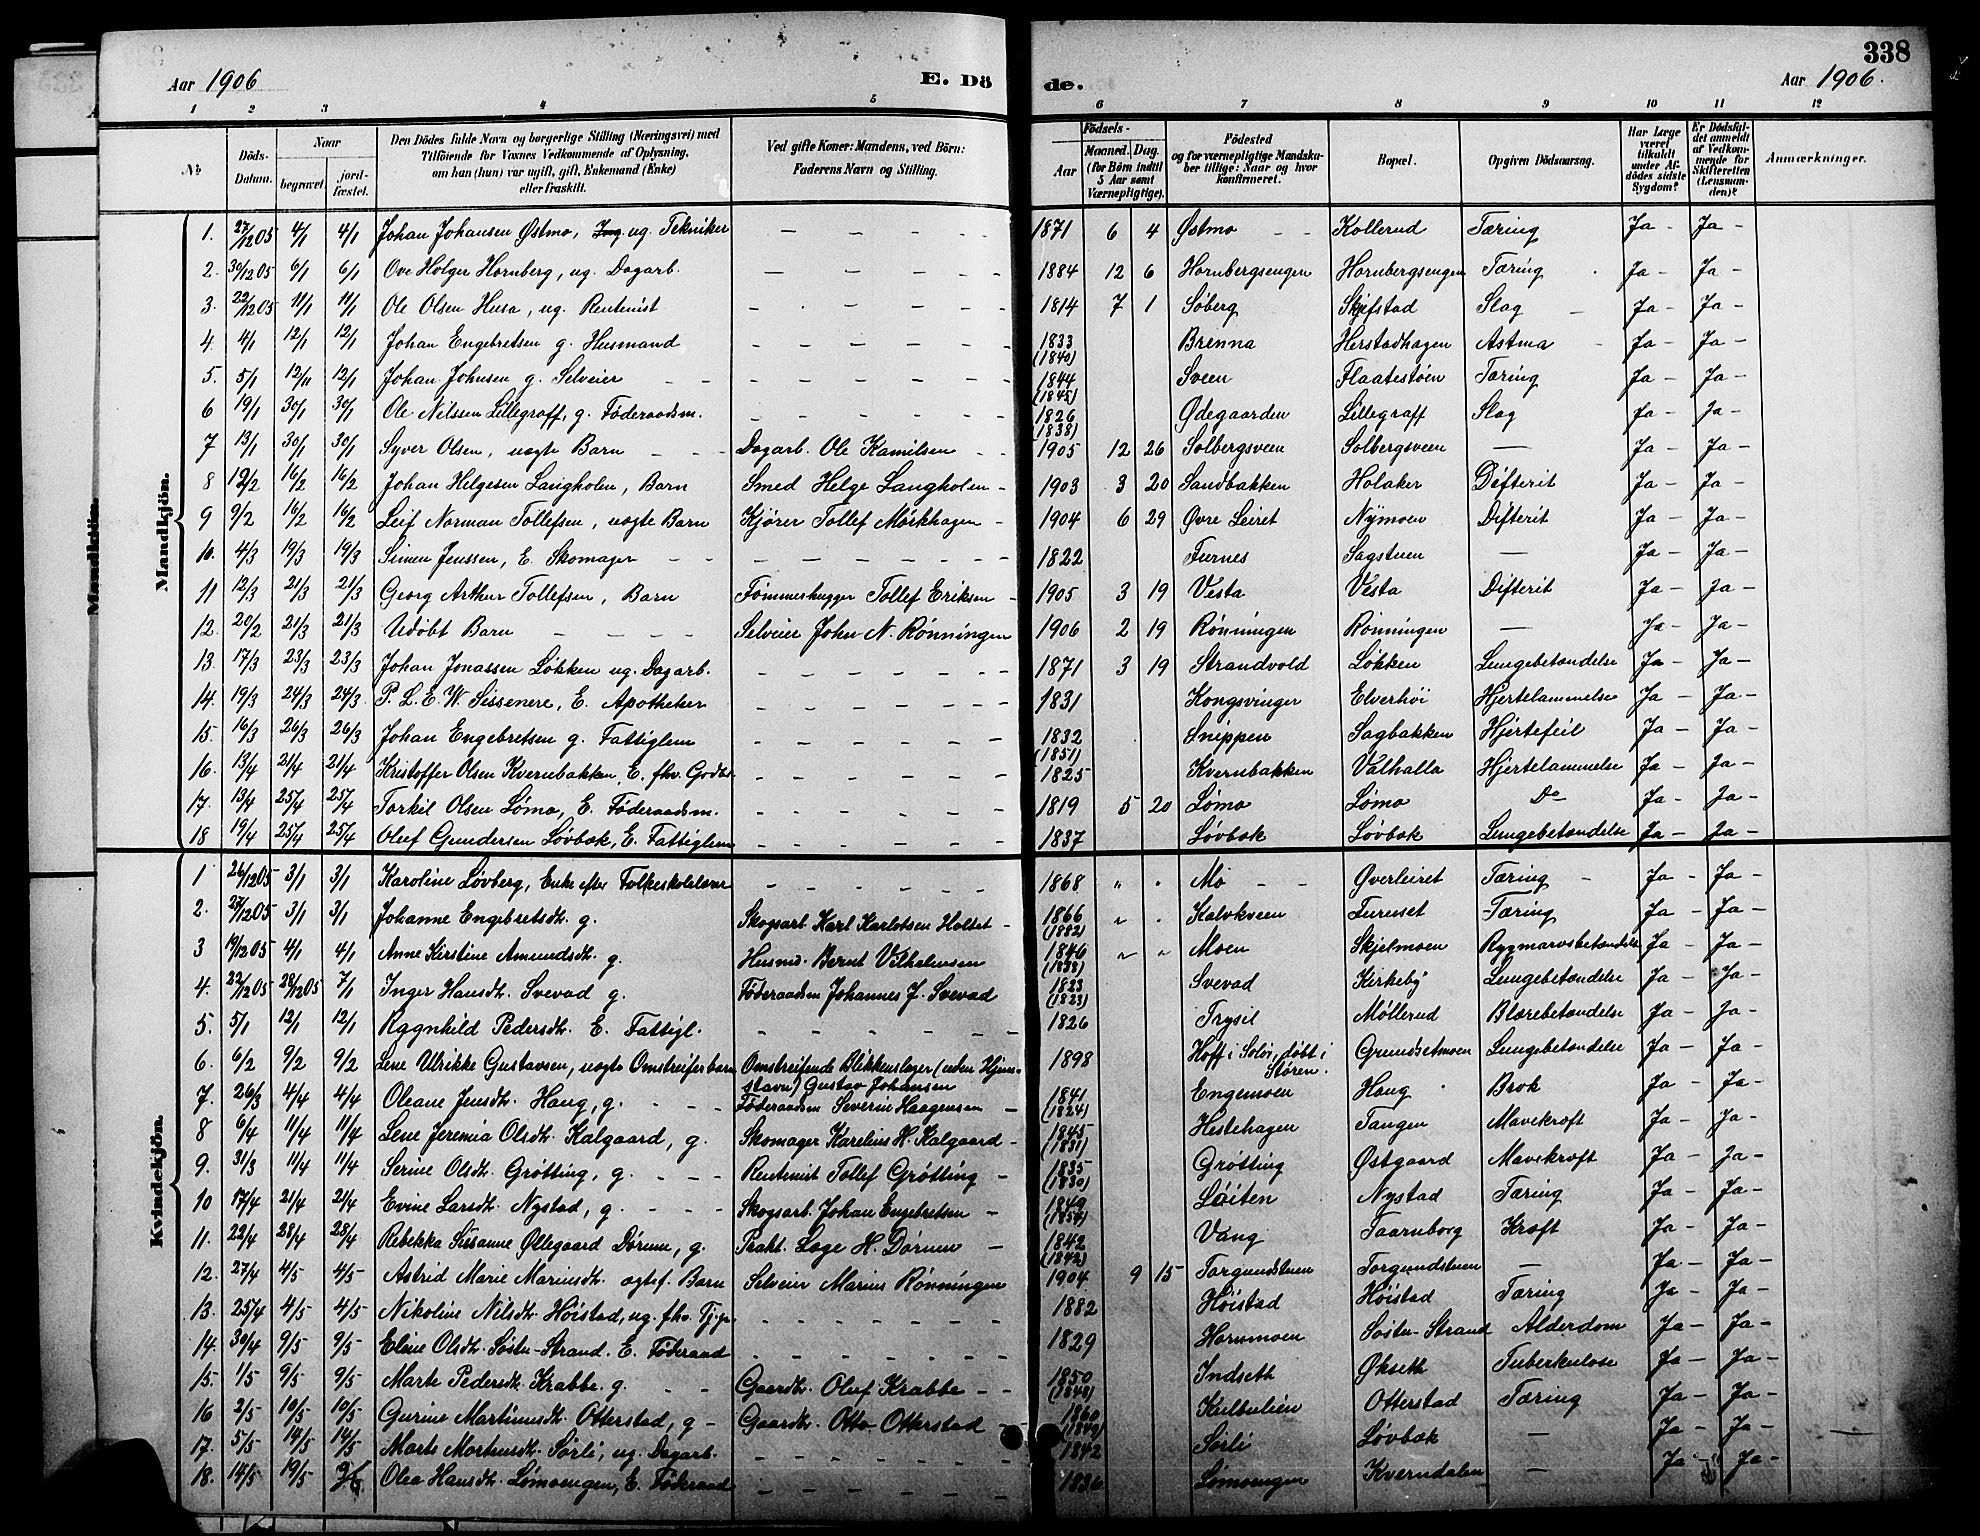 338
Aar 1906 E. Dö de. Aar 1906.
1 2 3 4 5 6 7 8 9 10 11 12
No Döds-Datum. Naar begravet. jord-fæstet. Den Dödes fulde Navn og borgerlige Stilling (Næringsvei) med Tilföiende for Voxnes Vedkommende af Oplysning, om han (hun) var ugift, gift, Enkemand (Enke) eller fraskilt. Ved gifte Koner: Mandens, ved Börn: Faderens Navn og Stilling. Födsels- Aar Maaned. Dag. (for Börn indtil 5 Aar samt Værnepligtige). Födested og for værnepligtige Mandskaber tillige: Naar og hvor konfirmeret. Bopæl. Opgiven Dödsaarsag. Har Læge været tilkaldt under Afdödes sidste Sygdom? Er Dödsfaldet anmeldt af Vedkommende for Skifteretten (Lensmanden)? Anmærkninger.
Mandkjön.
1. 27/12 05 4/1 4/1 Johan Johansen Østmo, ug. Tekniker 1871 6 4 Østmo Kollerud Tæring Ja Ja
2. 30/12 05 6/1 6/1 Ove Holger Hornberg, ug. Dagarb. 1884 12 6 Hornbergsengen Hornbergsengen Tæring Ja Ja
3. 22/12 05 11/1 11/1 Ole Olsen Husa, ug. Rentenist 1814 7 1 Søberg Skjefstad Slag Ja Ja
4. 4/1 12/1 12/1 Johan Engebretsen g. Husmand 1833 (1840) Brenna Herstadhagen Astma Ja Ja
5. 5/1 12/11 12/1 Johan Johnsen g. Selveier 1844 (1845) Sveen Flaatestøen Tæring Ja Ja
6 19/1 30/1 30/1 Ole Nilssen Lillegraff, g. Föderaadsm. 1826 (1838) Ødegaarden Lillegraff Slag Ja Ja
7 13/1 30/1 30/1 Syver Olsen, uægte Barn Dagarb. Ole Kamilsen 1905 12 26 Solbergsveen Solbergsveen — Ja Ja
8 12/2 16/2 16/2 Johan Helgesen Langholen, Barn Smed Helge Langholen 1903 3 20 Sandbakken Holaker Difterit Ja Ja
9 9/2 16/2 16/2 Leif Norman Tollefsen, uægte Barn Kjører Tollef Mørkhagen 1904 6 29 Øvre Leiret Nymoen Difterit Ja Ja
10. 4/3 19/3 19/3 Simen Jenssen, E. Skomager 1822 Furnes Sagstuen — Ja Ja
11 12/3 21/3 21/3 Georg Arthur Tollefsen, Barn Tømmerhugger Tollef Eriksen 1905 3 19 Vesta Vesta Difterit Ja Ja
12. 20/2 21/3 21/3 Udøbt Barn Selveier John N. Rønningen 1906 2 19 Rønningen Rønningen — Ja Ja
13. 17/3 23/3 23/3 Johan Jonassen Løkken ug. Dagarb. 1871 3 19 Strandvold Løkken Lungebetændelse Ja Ja
14. 19/3 24/3 24/3 P. L. E. W. Sissenere, E. Apotheker 1831 Kongsvinger Elverhöi Hjertelammelse Ja Ja
15. 16/3 26/3 26/3 Johan Engebretsen g. Fattiglem 1832 (1851) Snippen Sagbakken Hjertefeil Ja Ja
16. 13/4 21/4 21/4 Kristoffer Olsen Kvernbakken, E. fhv. Godb. 1825 Kvernbakken Valhalla Hjertelammelse Ja Ja
17. 13/4 25/4 25/4 Torkil Olsen Lømo, E. Föderaadsm. 1819 5 20 Lømo Lømo Do Ja Ja
18 19/4 25/4 25/4 Oluf Gundersen Løvbæk, E. Fattiglem 1837 Løvbæk Løvbæk Lungebetændelse Ja Ja
Kvindekjön.
1 26/12 05 3/1 3/1 Karoline Løvberg, Enke efter Folkeskolelærer 1868 " " Mo Øverleiret Tæring Ja Ja
2. 27/12 05 3/1 3/1 Johanne Engebretsdt. g. Skogsarb. Karl Karlstsen Holtet 1866 (1882) " " Kalvkveen Furuset Tæring Ja Ja
3 19/12 05 4/1 4/1 Anne Kirstine Amundsdt. g. Husmd. Bernt Vilhelmsen 1846 (1838) " " Moen Skjelmoen Rygmarvsbetændelse Ja Ja
4. 22/12 05 28/12 05 7/1 Inger Hansdt. Svevad g. Föderaadsm Johannes J. Svevad 1823 (1823) Svevad Kirkeby Lungebetændelse Ja Ja
5. 5/1 12/1 12/1 Ragnhild Pedersdt. E. Fattigl. 1826 Trysil Møllerud Blærebetændelse Ja Ja
6. 6/2 9/2 9/2 Lene Ulrikke Gustavsen, uægte Omstreiferbarn Omstreifende Blikkenslager (uden Hjemstavn) Gustav Johansen 1898 Hoff i Solör, døbt i Støren. Grundsetmoen Lungebetændelse Ja Ja
7. 26/3 4/4 4/4 Oleane Jensdt. Haug, g. Föderaadsm Severin Haagensen 1841 (1824) Engemoen Haug Brok Ja Ja
8 6/4 11/4 11/4 Lene Jeremia Olsdt. Kalgaard, g. Skomager Karelius H. Kalgaard 1845 (1831) Hestehagen Tangen Mavekræft Ja Ja
9. 31/3 11/4 11/4 Serine Olsdt. Grøtting, g. Rentenist Tollef Grøtting 1835 (1830) Grøtting Østgaard Mavekræft Ja Ja
10 17/4 21/4 21/4 Evine Larsdt. Nystad, g. Skogsarb. Johan Engebretsen 1849 (1854) Løiten Nystad Tæring Ja Ja
11. 22/4 28/4 28/4 Rebekka Susanne Øllegaard Dørum, g. Prakt. Læge H. Dørum 1842 (1842) Vang Taarnborg Kræft Ja Ja
12. 27/4 4/5 4/5 Astrid Marie Mariusdt. ægtef. Barn Selveier Marius Rønningen 1904 9 15 Torgundstuen Torgundstuen — Ja Ja
13. 25/4 4/5 4/5 Nikoline Nilsdt. Høistad, ug. fhv. Tj.p. 1882 Høistad Høistad Tæring Ja Ja
14. 30/4 9/5 9/5 Eline Olsdt. Søstu-Strand. E. Föderaad 1829 Hornmoen Søstu-Strand Alderdom Ja Ja
15. 1/5 9/5 9/5 Marte Pedersdt. Krabbe. g. Gaardb. Oluf Krabbe 1850 (1848) Indseth Økseth Tuberkulose Ja Ja
16 2/5 10/5 10/5 Gurine Martinusdt. Otterstad, g Gaardb. Otto Otterstad 1860 (1849) Kulbulien Otterstad Tæring Ja Ja
17. 5/5 14/5 14/5 Marte Mortensdt. Sørli, ug. Dagarb. 1842 Sørli Løvbæk — Ja Ja
18. 14/5 19/5 Olea Hansdt. Lømoengen, E. Föderaad 1836 Lømoengen Kverndalen — Ja Ja